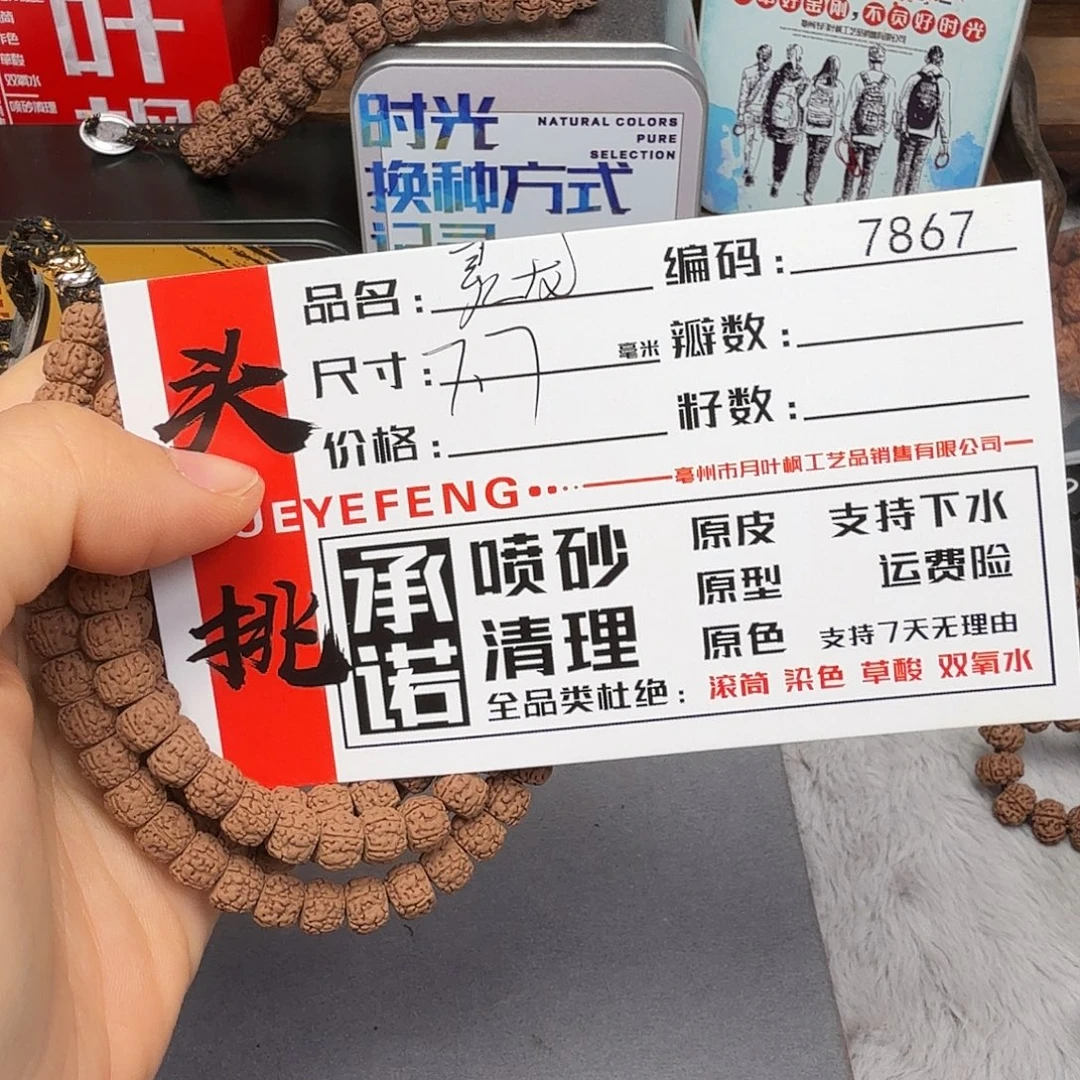 叶
枫
双氧水
喷砂清理
时光
换种方式
记录
NATURAL COLORS
PURE
SELECTION
好金刚,不负好时光
头挑
品名:
编码:7867
尺寸: 毫米
瓣数:
价格:
籽数:
亳州市月叶枫工艺品销售有限公司
UEYEFENG
承诺
喷砂
清理
原皮
原型
原色
支持下水
运费险
支持7天无理由
全品类杜绝:滚筒 染色 草酸 双氧水